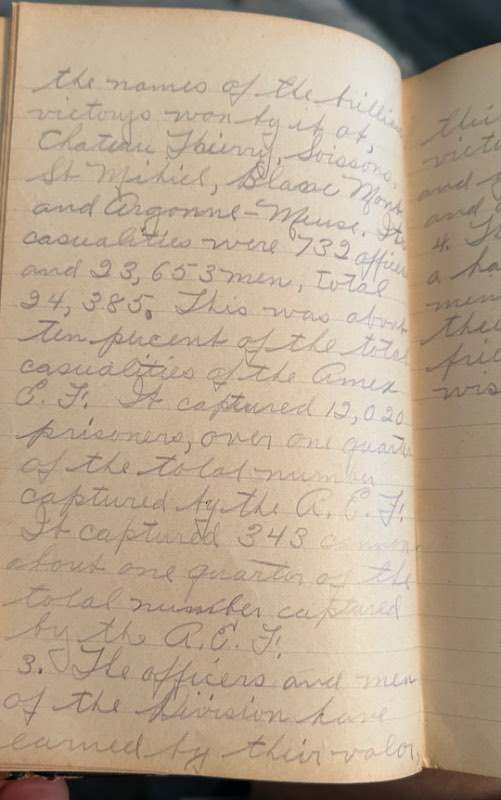 the names of the brillian
victorys won by it at,
Chateau Thierry, Soissons,
St Mihiel, Blanc Mont
and Argonne-Meuse. Its
casualities were 732 officers
and 23,653 men, total
24,385. This was about
ten percent of the total
casualities of the Amer
E. F. It captured 12,020
prisoners, over one quarter
of the total number
captured by the A. E. F.
It captured 343 cannon
about one quarter of the
total number captured
by the A. E. F.
3. The officers and men
of the Division have
earned by their valor,
thi
victo
and
and
4. Th
a ha
men
thei
frie
wis